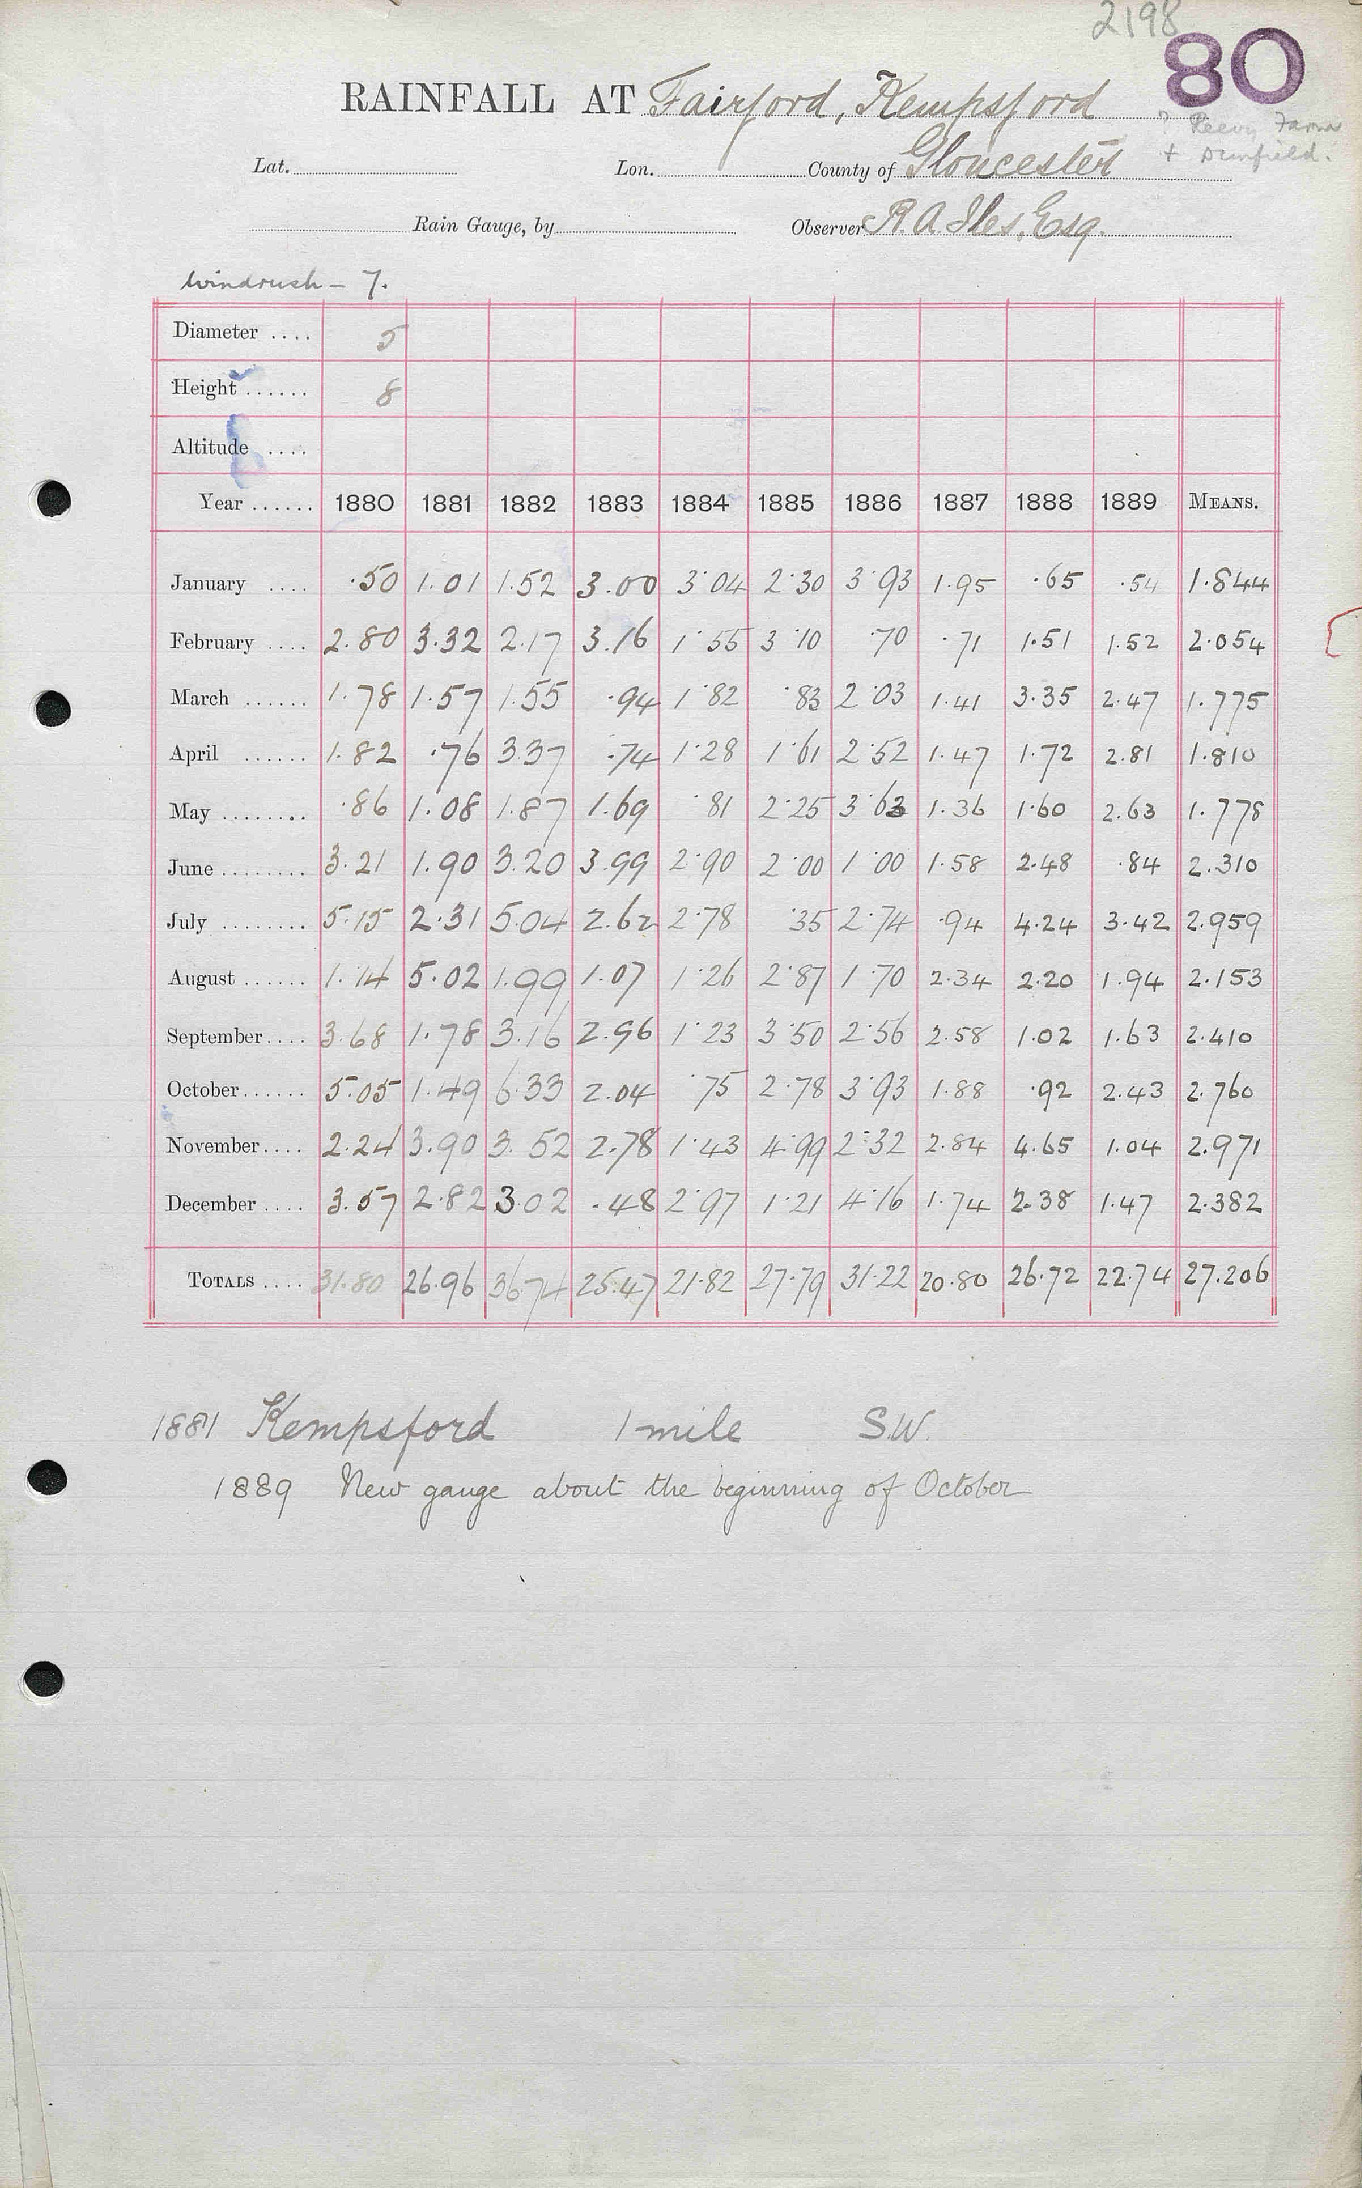 2198
80
RAINFALL AT Fairford, Kempsford
? Reevy Farm
+ Dunfield.
Lat. Lon. County of Gloucester
Rain Gauge, by Observer R. A. Iles, Esq.
Windrush – 7.
Diameter .... 5
Height ...... 8
Altitude ....
Year ...... 1880 1881 1882 1883 1884 1885 1886 1887 1888 1889 MEANS.
January .... .50 1.01 1.52 3.00 3.04 2.30 3.93 1.95 .65 .54 1.844
February .... 2.80 3.32 2.17 3.16 1.55 3.10 .70 .71 1.51 1.52 2.054
March ...... 1.78 1.57 1.55 .94 1.82 .83 2.03 1.41 3.35 2.47 1.775
April ...... 1.82 .76 3.37 .74 1.28 1.61 2.52 1.47 1.72 2.81 1.810
May ........ .86 1.08 1.87 1.69 .81 2.25 3.63 1.36 1.60 2.63 1.778
June ........ 3.21 1.90 3.20 3.99 2.90 2.00 1.00 1.58 2.48 .84 2.310
July ........ 5.15 2.31 5.04 2.62 2.78 .35 2.74 .94 4.24 3.42 2.959
August ...... 1.14 5.02 1.99 1.07 1.26 2.87 1.70 2.34 2.20 1.94 2.153
September .... 3.68 1.78 3.16 2.96 1.23 3.50 2.56 2.58 1.02 1.63 2.410
October ...... 5.05 1.49 6.33 2.04 .75 2.78 3.93 1.88 .92 2.43 2.760
November .... 2.24 3.90 3.52 2.78 1.43 4.99 2.32 2.84 4.65 1.04 2.971
December .... 3.57 2.82 3.02 .48 2.97 1.21 4.16 1.74 2.38 1.47 2.382
TOTALS .... 31.80 26.96 36.74 25.47 21.82 27.79 31.22 20.80 26.72 22.74 27.206
1881 Kempsford 1 mile S.W.
1889 New gauge about the beginning of October